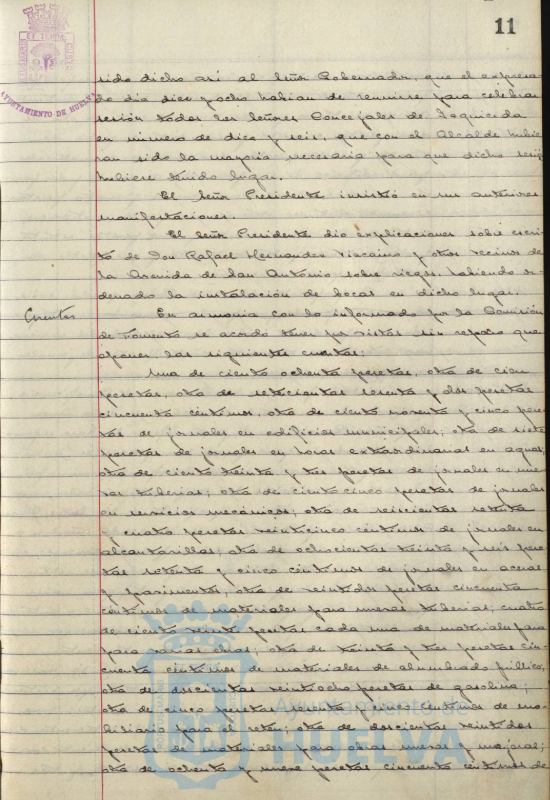 11
AYUNTAMIENTO DE HUELVA
sido dicho así al Señor Gobernador, que el expresa-
do día diez y ocho habían de reunirse para celebrar
sesión todos los Señores Concejales de Izquierda
en número de diez y seis, que con el Alcalde hubie-
ran sido la mayoría necesaria para que dicha sesión
hubiese tenido lugar.
El Señor Presidente insistió en sus anteriores
manifestaciones.
El Señor Presidente dió explicaciones sobre escri-
to de Don Rafael Hernandez Vizcaino y otros vecinos de
la Avenida de San Antonio sobre riegos, habiendo or-
denado la instalación de bocas en dicho lugar.
Cuentas
En armonía con lo informado por la Comisión
de Fomento se acordó tener por vistas sin reparo que
oponer las siguientes cuentas:
Una de ciento ochenta pesetas, otra de cien
pesetas, otra de setecientas sesenta y dos pesetas
cincuenta céntimos, otra de ciento noventa y cinco pese-
tas de jornales en edificios municipales; otra de siete
pesetas de jornales en horas extraordinarias en aguas;
otra de ciento treinta y tres pesetas de jornales en nue-
vas tuberías; otra de ciento cinco pesetas de jornales
en servicios mecánicos; otra de seiscientas setenta
y cuatro pesetas veinticinco céntimos de jornales en
alcantarillas; otra de ochocientas treinta y seis pese-
tas setenta y cinco céntimos de jornales en aceras
y pavimentos; otra de veintidos pesetas cincuenta
céntimos de materiales para nuevas tuberías; cuatro
de ciento veinte pesetas cada una de materiales para
para varias obras; otra de treinta y tres pesetas cin-
cuenta céntimos de materiales de alumbrado público;
otra de doscientas veintiocho pesetas de gasolina;
otra de cinco pesetas sesenta y cinco céntimos de mo-
biliario para el retén; otra de doscientas veintidos
pesetas de materiales para obras nuevas y mejoras;
otra de ochenta y nueve pesetas cincuenta céntimos de
Ayuntamiento de
HUELVA